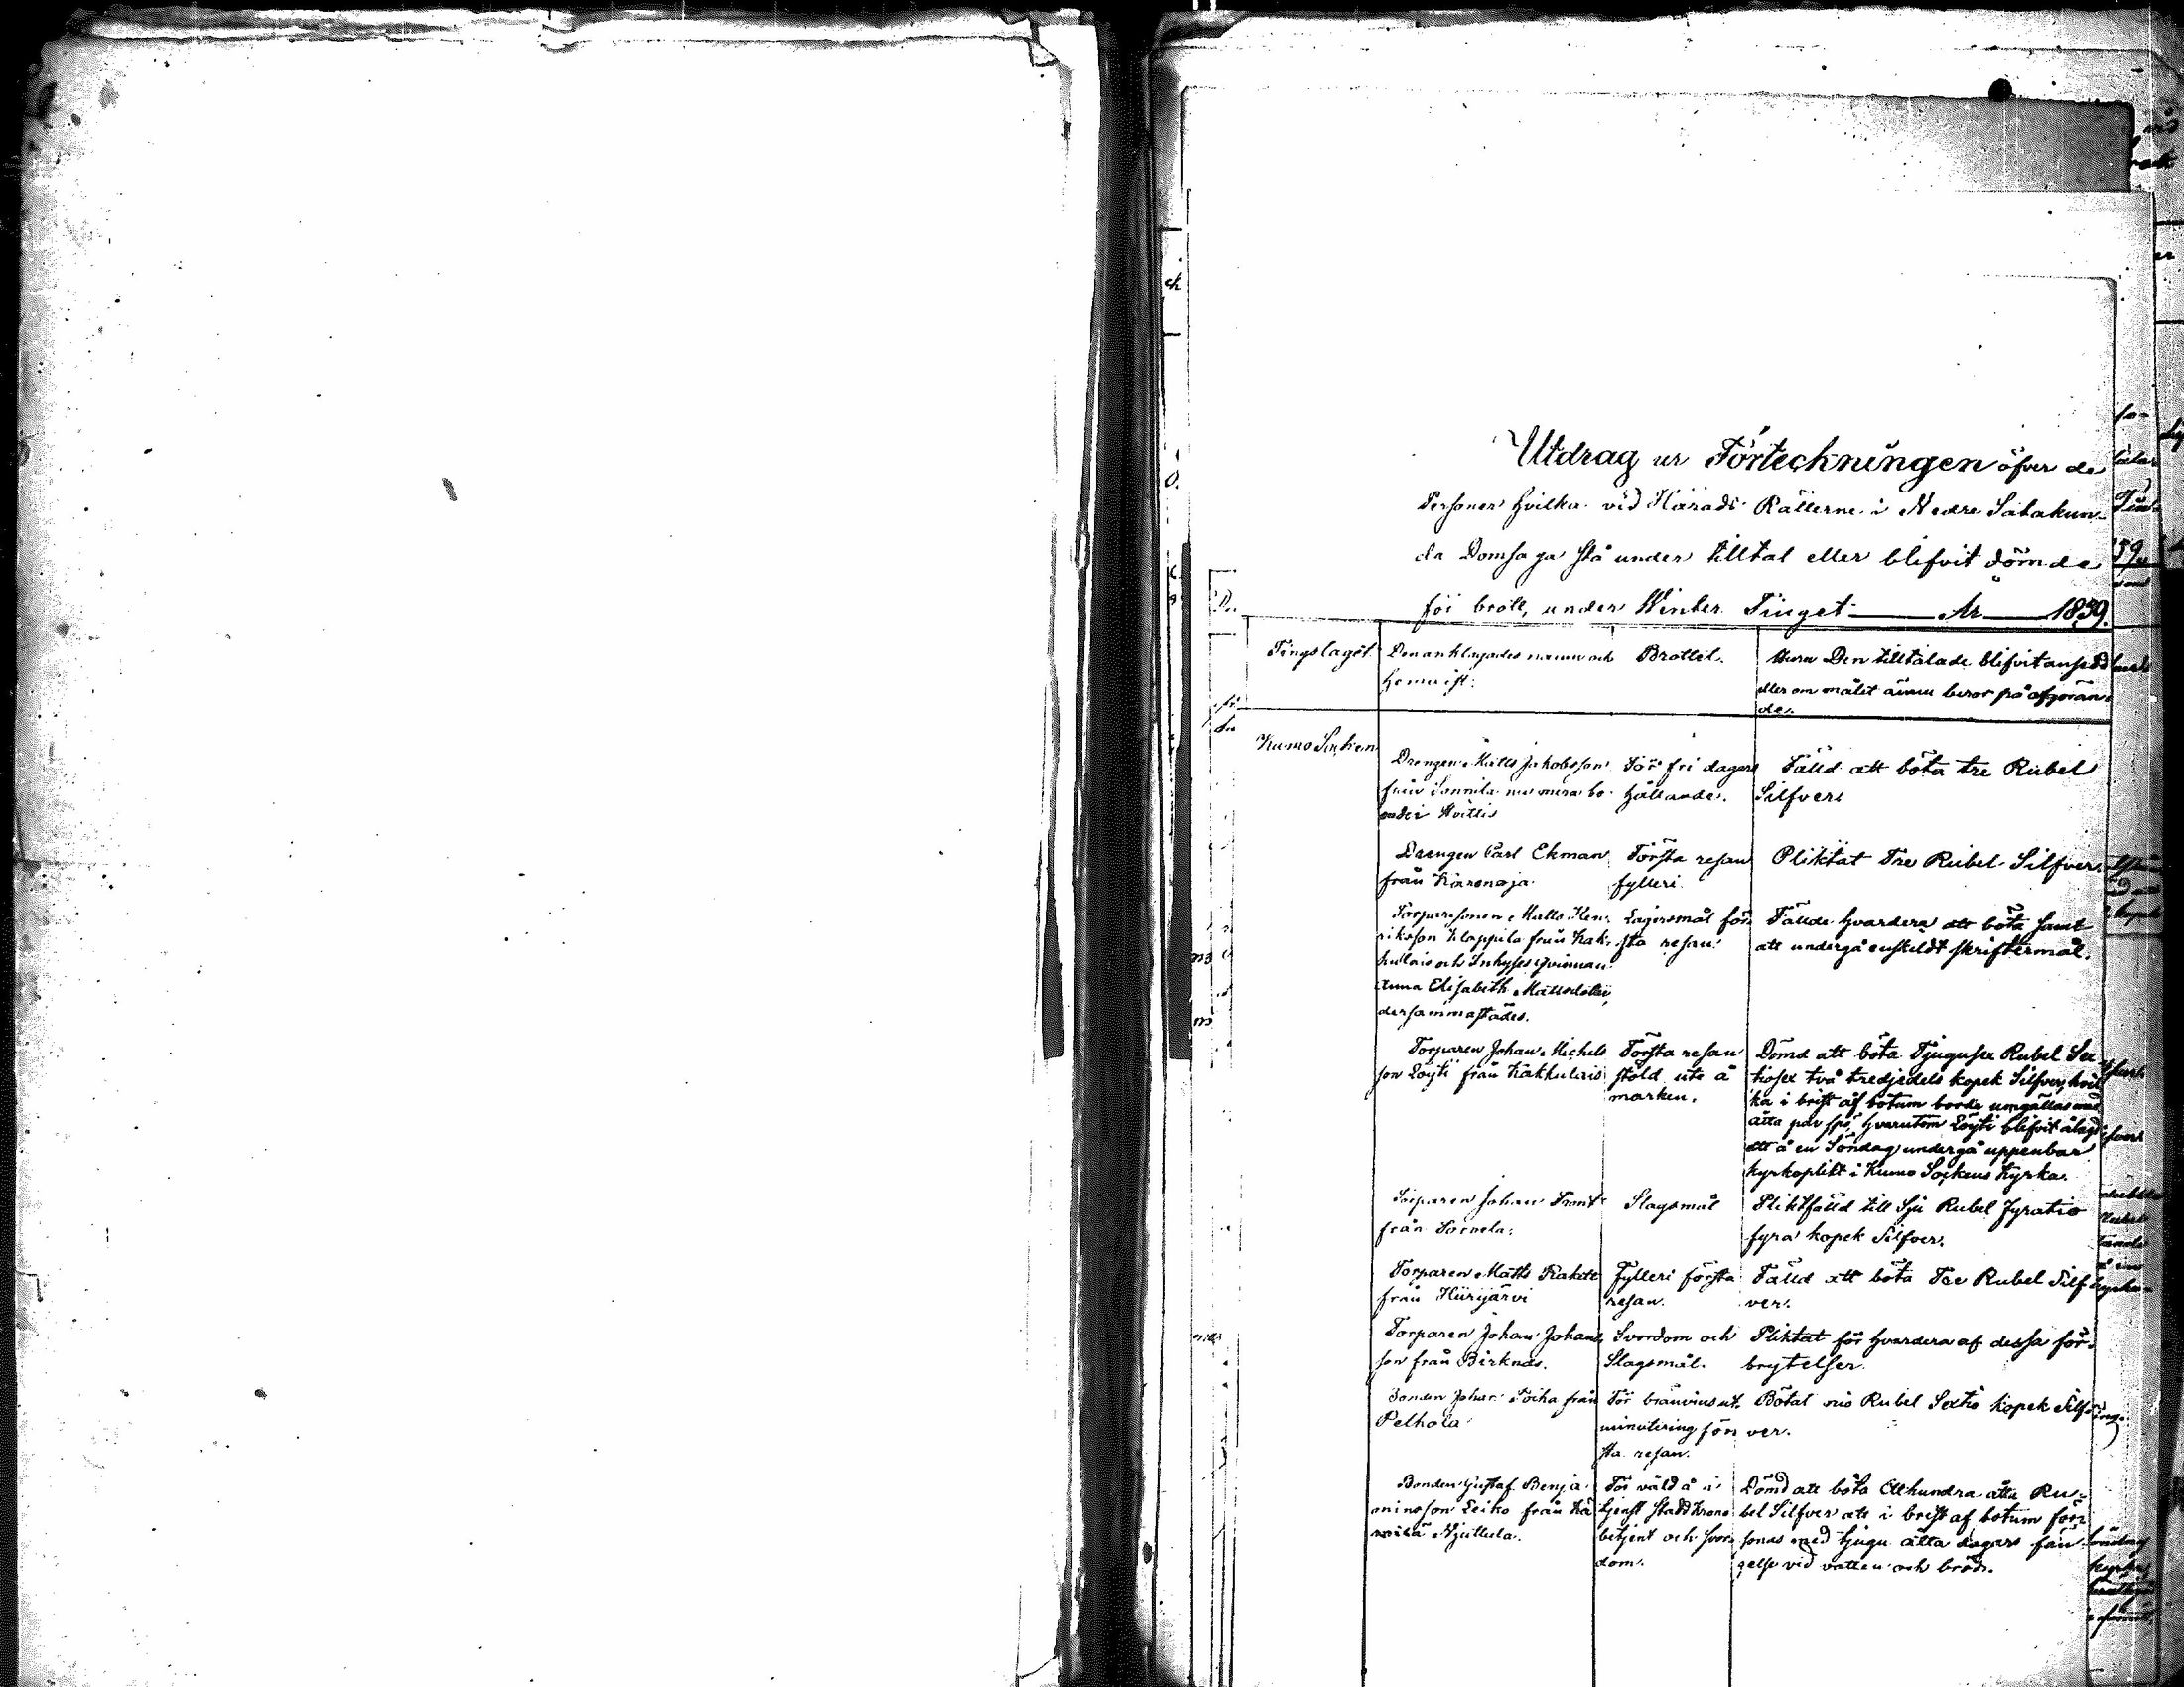 Utdrag ur Förteckningen öfver de
Personer hvilka vid Härads Rätterne i Nedre Satakun-
da Domsaga stå under tilltal eller blifvit dömde
för brott, under Winter Tinget — År — 1839.
Tingslaget.
Den anklagades namn och
hemvist.
Brottet.
Huru Den tilltalade blifvit ansedd
eller om målet ännu beror på afgöran-
de.
Kumo Socken
Drengen Matts Jakobsson
från Sonnila numera bo-
ende i Hvittis
För fri dagars
hållande.
Fälld att böta tre Rubel
Silfver
Drengen Carl Ekman
från Karenoja
Första resan
fylleri
Pliktat Tre Rubel Silfver.
Torparesonen Matts Hen-
riksson Klappila från Kak-
kulais och Inhyses qvinnan
Anna Elisabeth Mattsdotter
dersammastädes.
Lägersmål för-
sta resan
Fällde hvardera att böta samt
att undergå enskildt skriftermål.
Torparen Johan Michels
son Löyti från Kakkulais
Första resan
stöld ute å
marken.
Dömd att böta Tjugusex Rubel Sex
tiosex två tredjedels kopek Silfver, hvil
ka i brist af botum borde umgällas med
åtta par spö, hvarutom Löyti blifvit ålagd
att å en Söndag undergå uppenbar
kyrkoplikt i Kumo Sockens Kyrka.
Torparen Johan Front
från Sornela.
Slagsmål
Pliktfälld till Sju Rubel Fyratio
fyra kopek Silfver.
Torparen Matts
från Hiirijärvi
Fylleri första
resan.
Fälld att böta Tre Rubel Silf
ver.
Torparen Johan Johans
son från Birknäs.
Svordom och
Slagsmål.
Pliktat för hvardera af dessa för-
brytelser.
Bonden Johan från
Pelhola
För bränvinsut-
minutering för-
sta resan.
Bötat nio Rubel Sextio kopek Silf-
ver.
Bonden Gustaf Benja-
minsson Leiko från
För våld å i
tjenst stadd krono
betjent och svor-
dom.
Dömd att böta Etthundra åtta Ru-
bel Silfver att i brist af botum för-
sonas med tjugu åtta dagars fän-
gelse vid vatten och bröd.